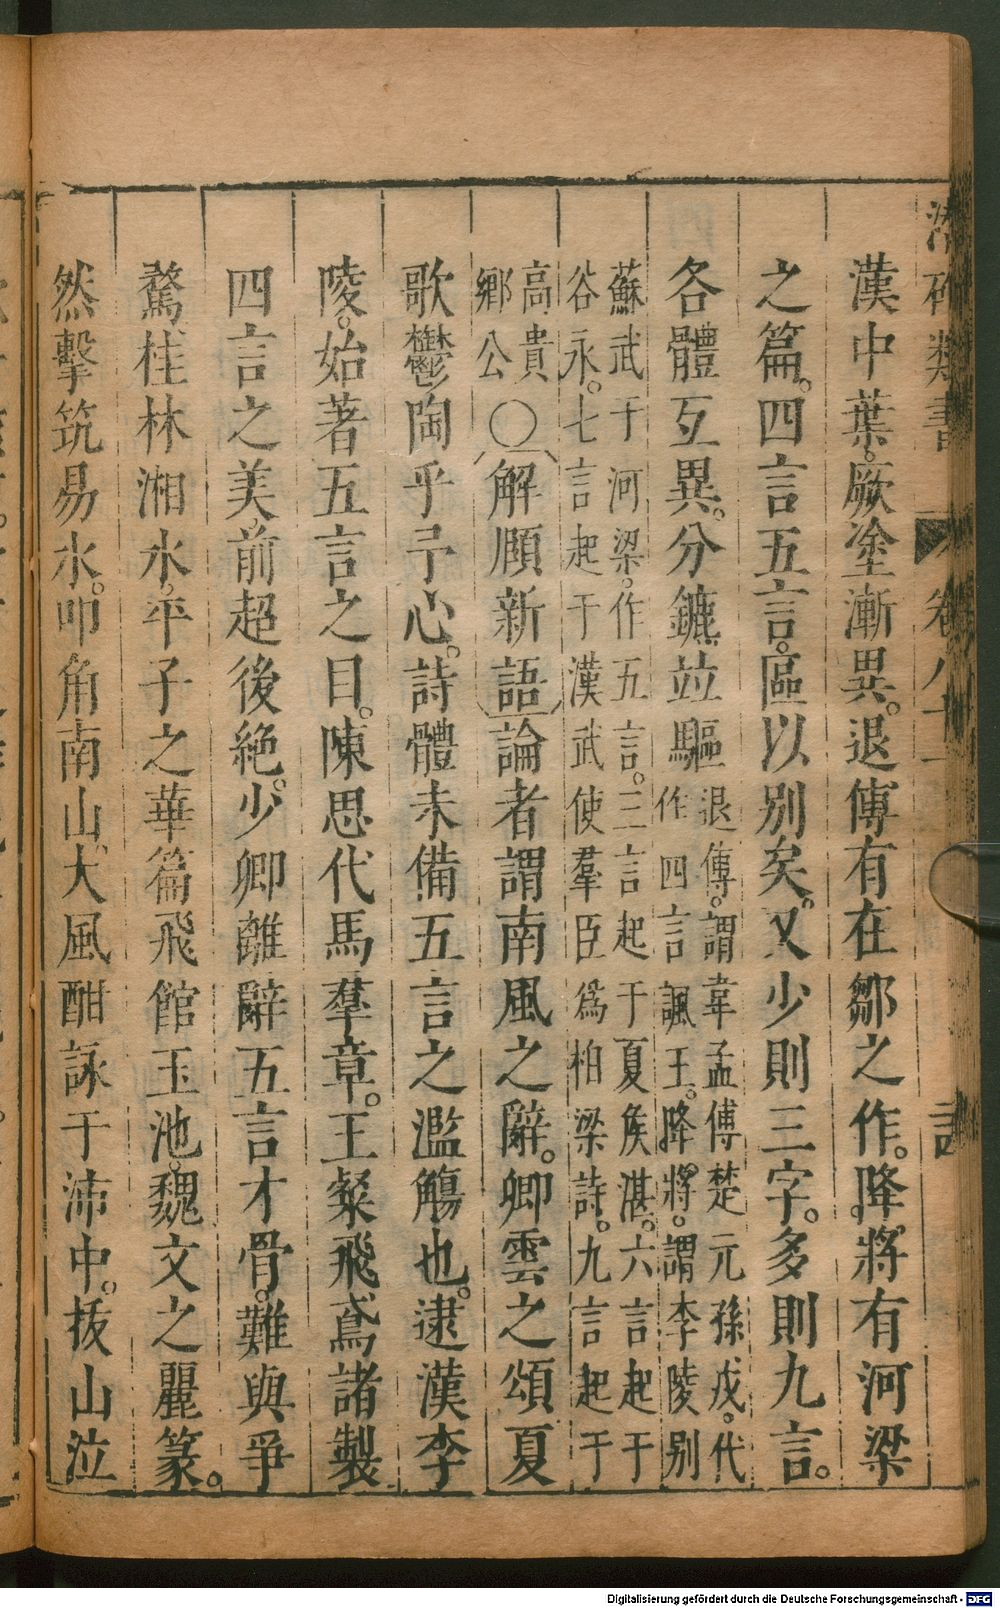 潛確類書 卷八十一 詩
漢中葉。厥塗漸異。退傅有在鄒之作。降將有河梁
之篇。四言五言。區以別矣。又少則三字。多則九言。
各體互異。分鑣竝驅
退傅。謂韋孟傅楚元孫戊。代
作四言諷王。降將。謂李陵別
蘇武于河梁。作五言。三言起于夏侯湛。六言起于
谷永。七言起于漢武使羣臣爲柏梁詩。九言起于
高貴
鄉公
○解頤新語論者謂南風之辭。卿雲之頌夏
歌鬱陶乎予心。詩體未備五言之濫觴也。逮漢李
陵。始著五言之目。陳思代馬羣章。王粲飛鳶諸製
四言之美。前超後絕。少卿離辭五言才骨。難與爭
騖桂林湘水。平子之華篇飛館玉池。魏文之麗篆。
然擊筑易水。叩角南山、大風酣詠于沛中。拔山泣
Digitalisierung gefördert durch die Deutsche Forschungsgemeinschaft - DFG